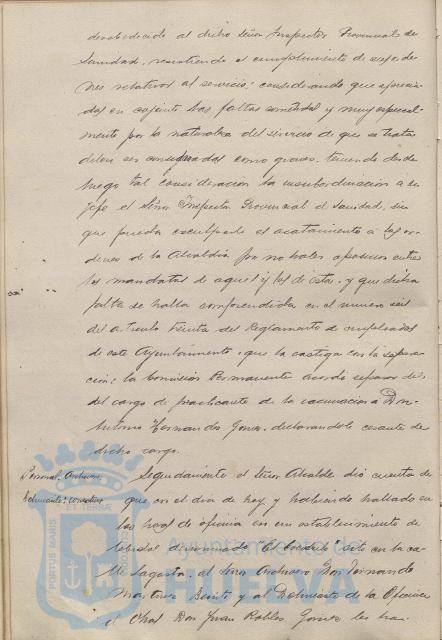 desobedecido al dicho Señor Inspector Provincial de
Sanidad, resistiendo el cumplimiento de sus orde-
nes relativas al servicio; considerando que aprecia-
das en conjunto las faltas cometidas y muy especial-
mente por la naturaleza del servicio de que se trata
deben ser consideradas como graves, teniendo desde
luego tal consideración la insubordinación a su
Jefe el Señor Inspector Provincial de Sanidad, sin
que pueda exculparle el acatamiento a las or-
denes de la Alcaldia por no haber oposicion entre
los mandatos de aquel y los de esta, y que dicha
falta se halla comprendida en el numero seis
del articulo treinta del Reglamento de empleados
de este Ayuntamiento, que la castiga con la separa-
cion; la Comision Permanente acordó separar del
del cargo de practicante de la vacunacion a Don
Antonio Hernandez Gomez, declarandole cesante de
dicho cargo.
Personal. Archivero
Delineante:
Seguidamente el Señor Alcalde dió cuenta de
que en el dia de hoy y habiendo hallado en
las horas de oficina en un establecimiento de
bebidas denominado sito en la ca-
lle Sagasta, al Señor Archivero Don Fernando
Martinez Benito y al Delineante de la Oficina
Don Juan Robles Gomez les
PORTUS MARIS ET TERRAE
Ayuntamiento de
HUELVA